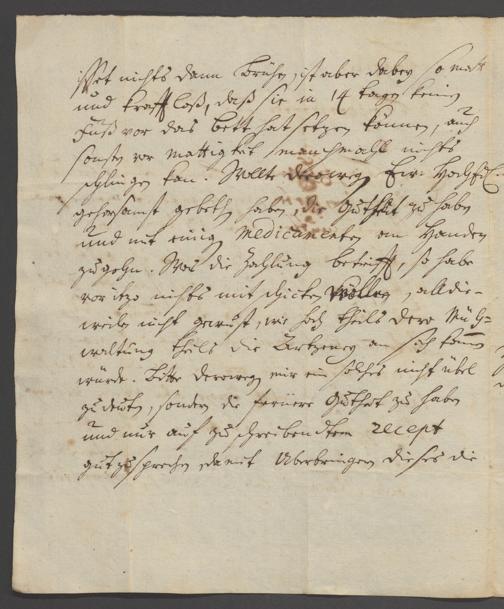 isset nichts dann Brühe, ist aber dabey so matt
und krafftloß, daß sie in 14 tagen keinen
Fuß vor das bett hat setzen können, auch
sonsten vor mattigkeit manchmahl nichts
schlingen kan. Wollte derowegen Ew: Hoch
gehorsamst gebethen haben, die Gutheit zu haben
und mit einig Medicamenten an Handen
zu gehen. Was die Zahlung betrifft, so habe
vor itzo nichts mit schicken wollen, alldie-
weilen nicht gewust, wie hoch theils dero Müh-
waltung theils die Artzeney an sich kommen
würde. Bitte derowegen mir ein solches nicht übel
zu deuten, sondern die fernere Gutheit zu haben
und nur auf zu schreibendten recept
gut zu sprechen, damit Uberbringer dieses die